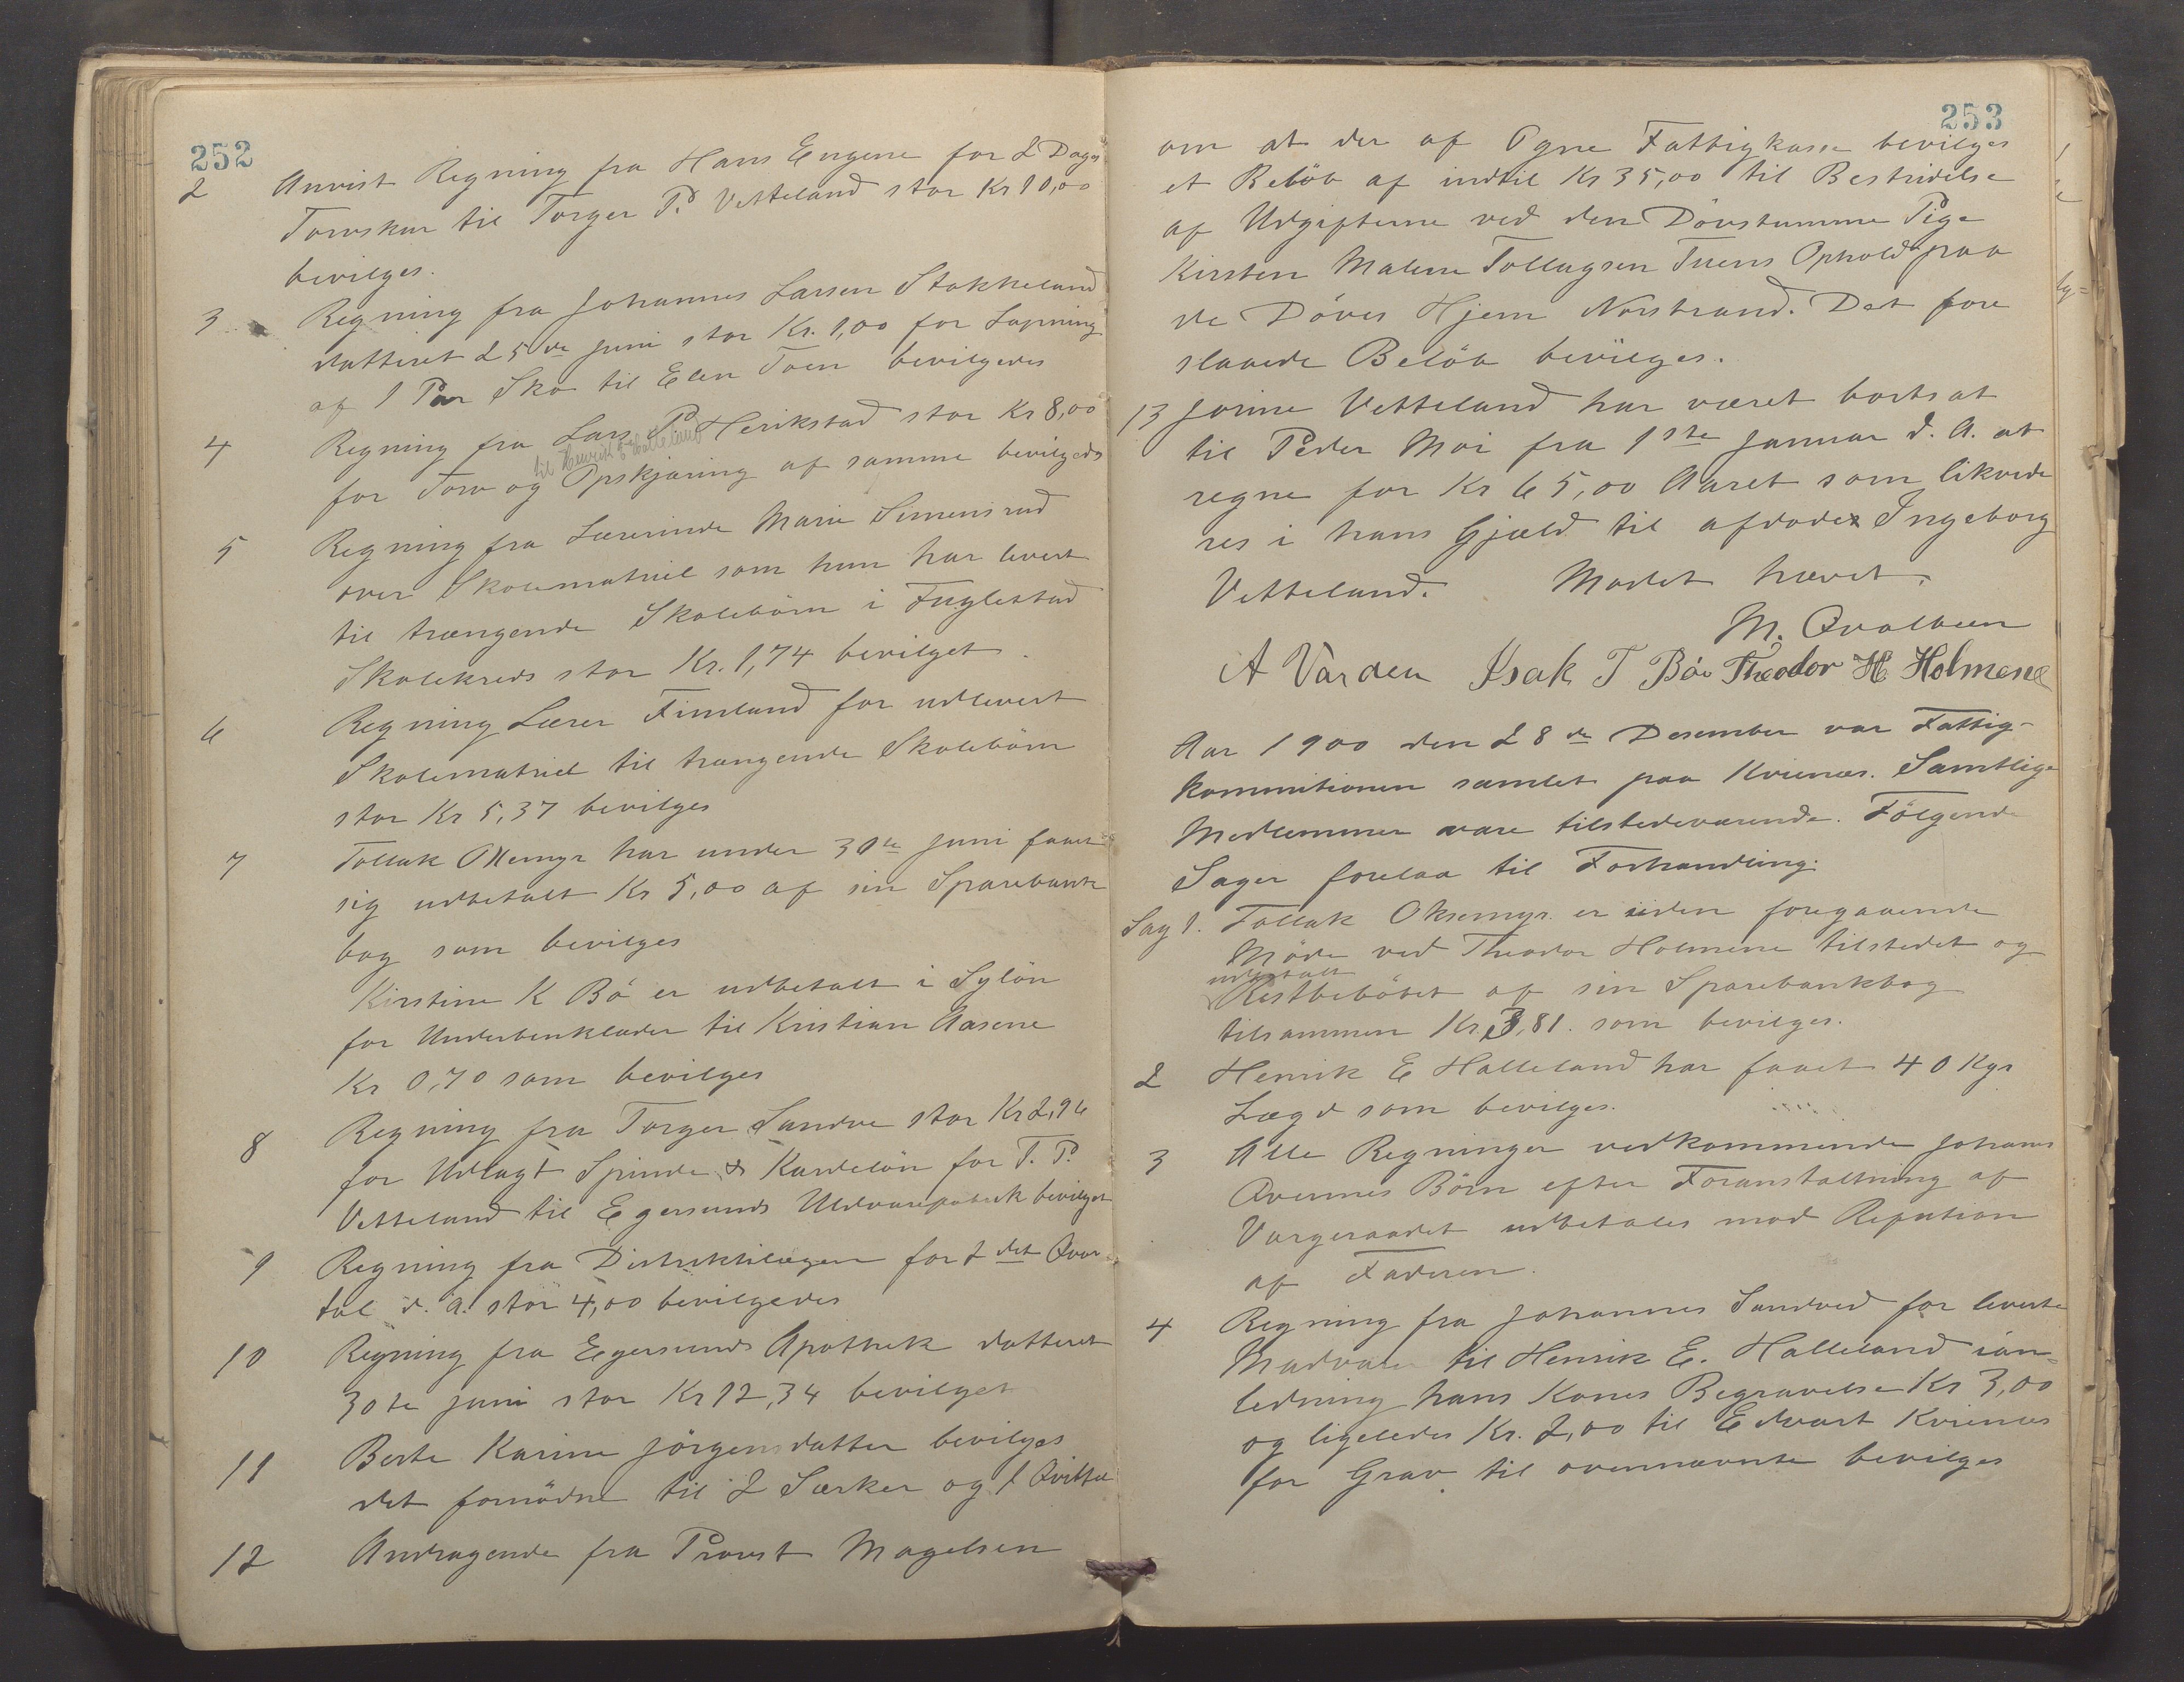 252
2 Anvist Regning fra Hans Eugene for 2 Dages
Torvskur til Torger P. Vetteland stor Kr 10,00
bevilges.
3 Regning fra Johannes Larsen Stokkeland
datteret 25de Juni stor Kr. 1,00 for Lapning
af 1 Par Sko til Elen Toen bevilgedes
4 Regning fra Lars P. Herikstad stor Kr 8,00
til Henrik E Halleland
for Torv og Opskjæring af samme bevilgedes
5 Regning fra Lærerinde Marie Simensrud
over Skolematriel som hun har levert
til trængende Skolebörn i Fuglestad
Skolekreds stor Kr. 1,74 bevilget.
6 Regning Lærer Fimland for udlevert
Skolematriel til trængende Skolebörn
stor Kr 5,37 bevilges
7 Tollak Oxemyr har under 30te Juni faaet
sig udbetalt Kr 5,00 af sin Sparebank
bog som bevilges
Kirstine K Bö er udbetalt i Sylön
for Underbenklæder til Kristian Aasene
Kr 0,70 som bevilges
8 Regning fra Torger Sandve stor Kr 2,96
for Udlagt Spinde & Kardelön for T. P.
Vetteland til Egersunds Uldvarefabrik bevilget
9 Regning fra Distriktslægen for 2det Qvar-
tal d. a. stor 4,00 bevilgedes
10 Regning fra Egersunds Apothek datteret
30te Juni stor Kr 12,34 bevilget
11 Berte Karine Jörgensdatter bevilges
det fornödne til 2 Særker og 1
12 Andragende fra Provst Magelsen
253
om at der af Ogne Fattigkasse bevilges
et Belöb af indtil Kr 35,00 til Bestridelse
af Udgifterne ved den Dövstumme Pige
Kirsten Malene Tollagsen Tuens Ophold paa
de Döves Hjem Norstrand. Det fore
slaaede Belöb bevilges.
13 Jorine Vetteland har været bortsat
til Peder Moi fra 1ste Januar d. A. at
regne for Kr 65,00 Aaret som likvide
res i hans Gjæld til afdöde Ingeborg
Vetteland. Mödet hævet.
M. Qvalbein
A Varden Isak T Bö Theodor H. Holmene
Aar 1900 den 28de Desember var Fattig-
kommitionen samlet paa Kvienes. Samtlige
Medlemmer vare tilstedeværende. Fölgende
Sager forelaa til Forhandling.
Sag 1. Tollak Oksemyr er siden foregaaende
Möde ved Theodor Holmene tilstedet og
udbetalt
Restbelöbet af sin Sparebankbog
tilsammen Kr 3,81. som bevilges.
2 Henrik E Halleland har faaet 40 Kgr
Lægd som bevilges.
3 Alle Regninger vedkommende Johans
Qvennes Börn efter Foranstaltning af
Værgeraadet udbetales mod Refution
af Faderen.
4 Regning fra Johannes Sandved for leverte
Madvarer til Henrik E. Halleland ian-
ledning hans Kones Begravelse Kr 3,00
og ligeledes Kr. 2,00 til Edvart Kvienes
for Grav til ovennævnte bevilges